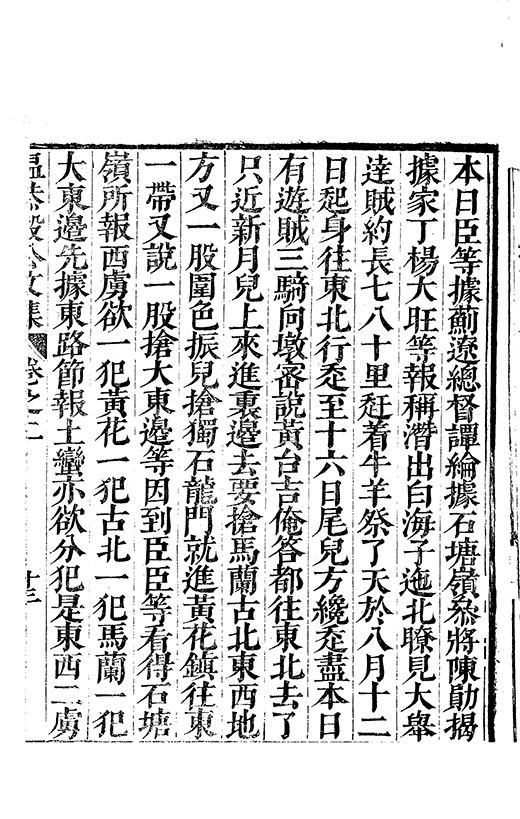 本日臣等據薊遼總督譚綸據石塘嶺叅將陳勛揭
據家丁楊大旺等報稱潛出白海子迤北瞭見大舉
逹賊約長七八十里赶着牛羊祭了天於八月十二
日起身徃東北行走至十六日尾兒方纔走盡本日
有遊賊三騎向墩密說黃台吉俺答都往東北去了
只近新月兒上來進裏邊去要搶馬蘭古北東西地
方又一股圍色振兒搶獨石龍門就進黃花鎮往東
一帶又說一股搶大東邊等因到臣臣等看得石塘
嶺所報西虜欲一犯黃花一犯古北一犯馬蘭一犯
大東邊先據東路節報土蠻亦欲分犯是東西二虜
溫恭毅公文集 卷之二 十三